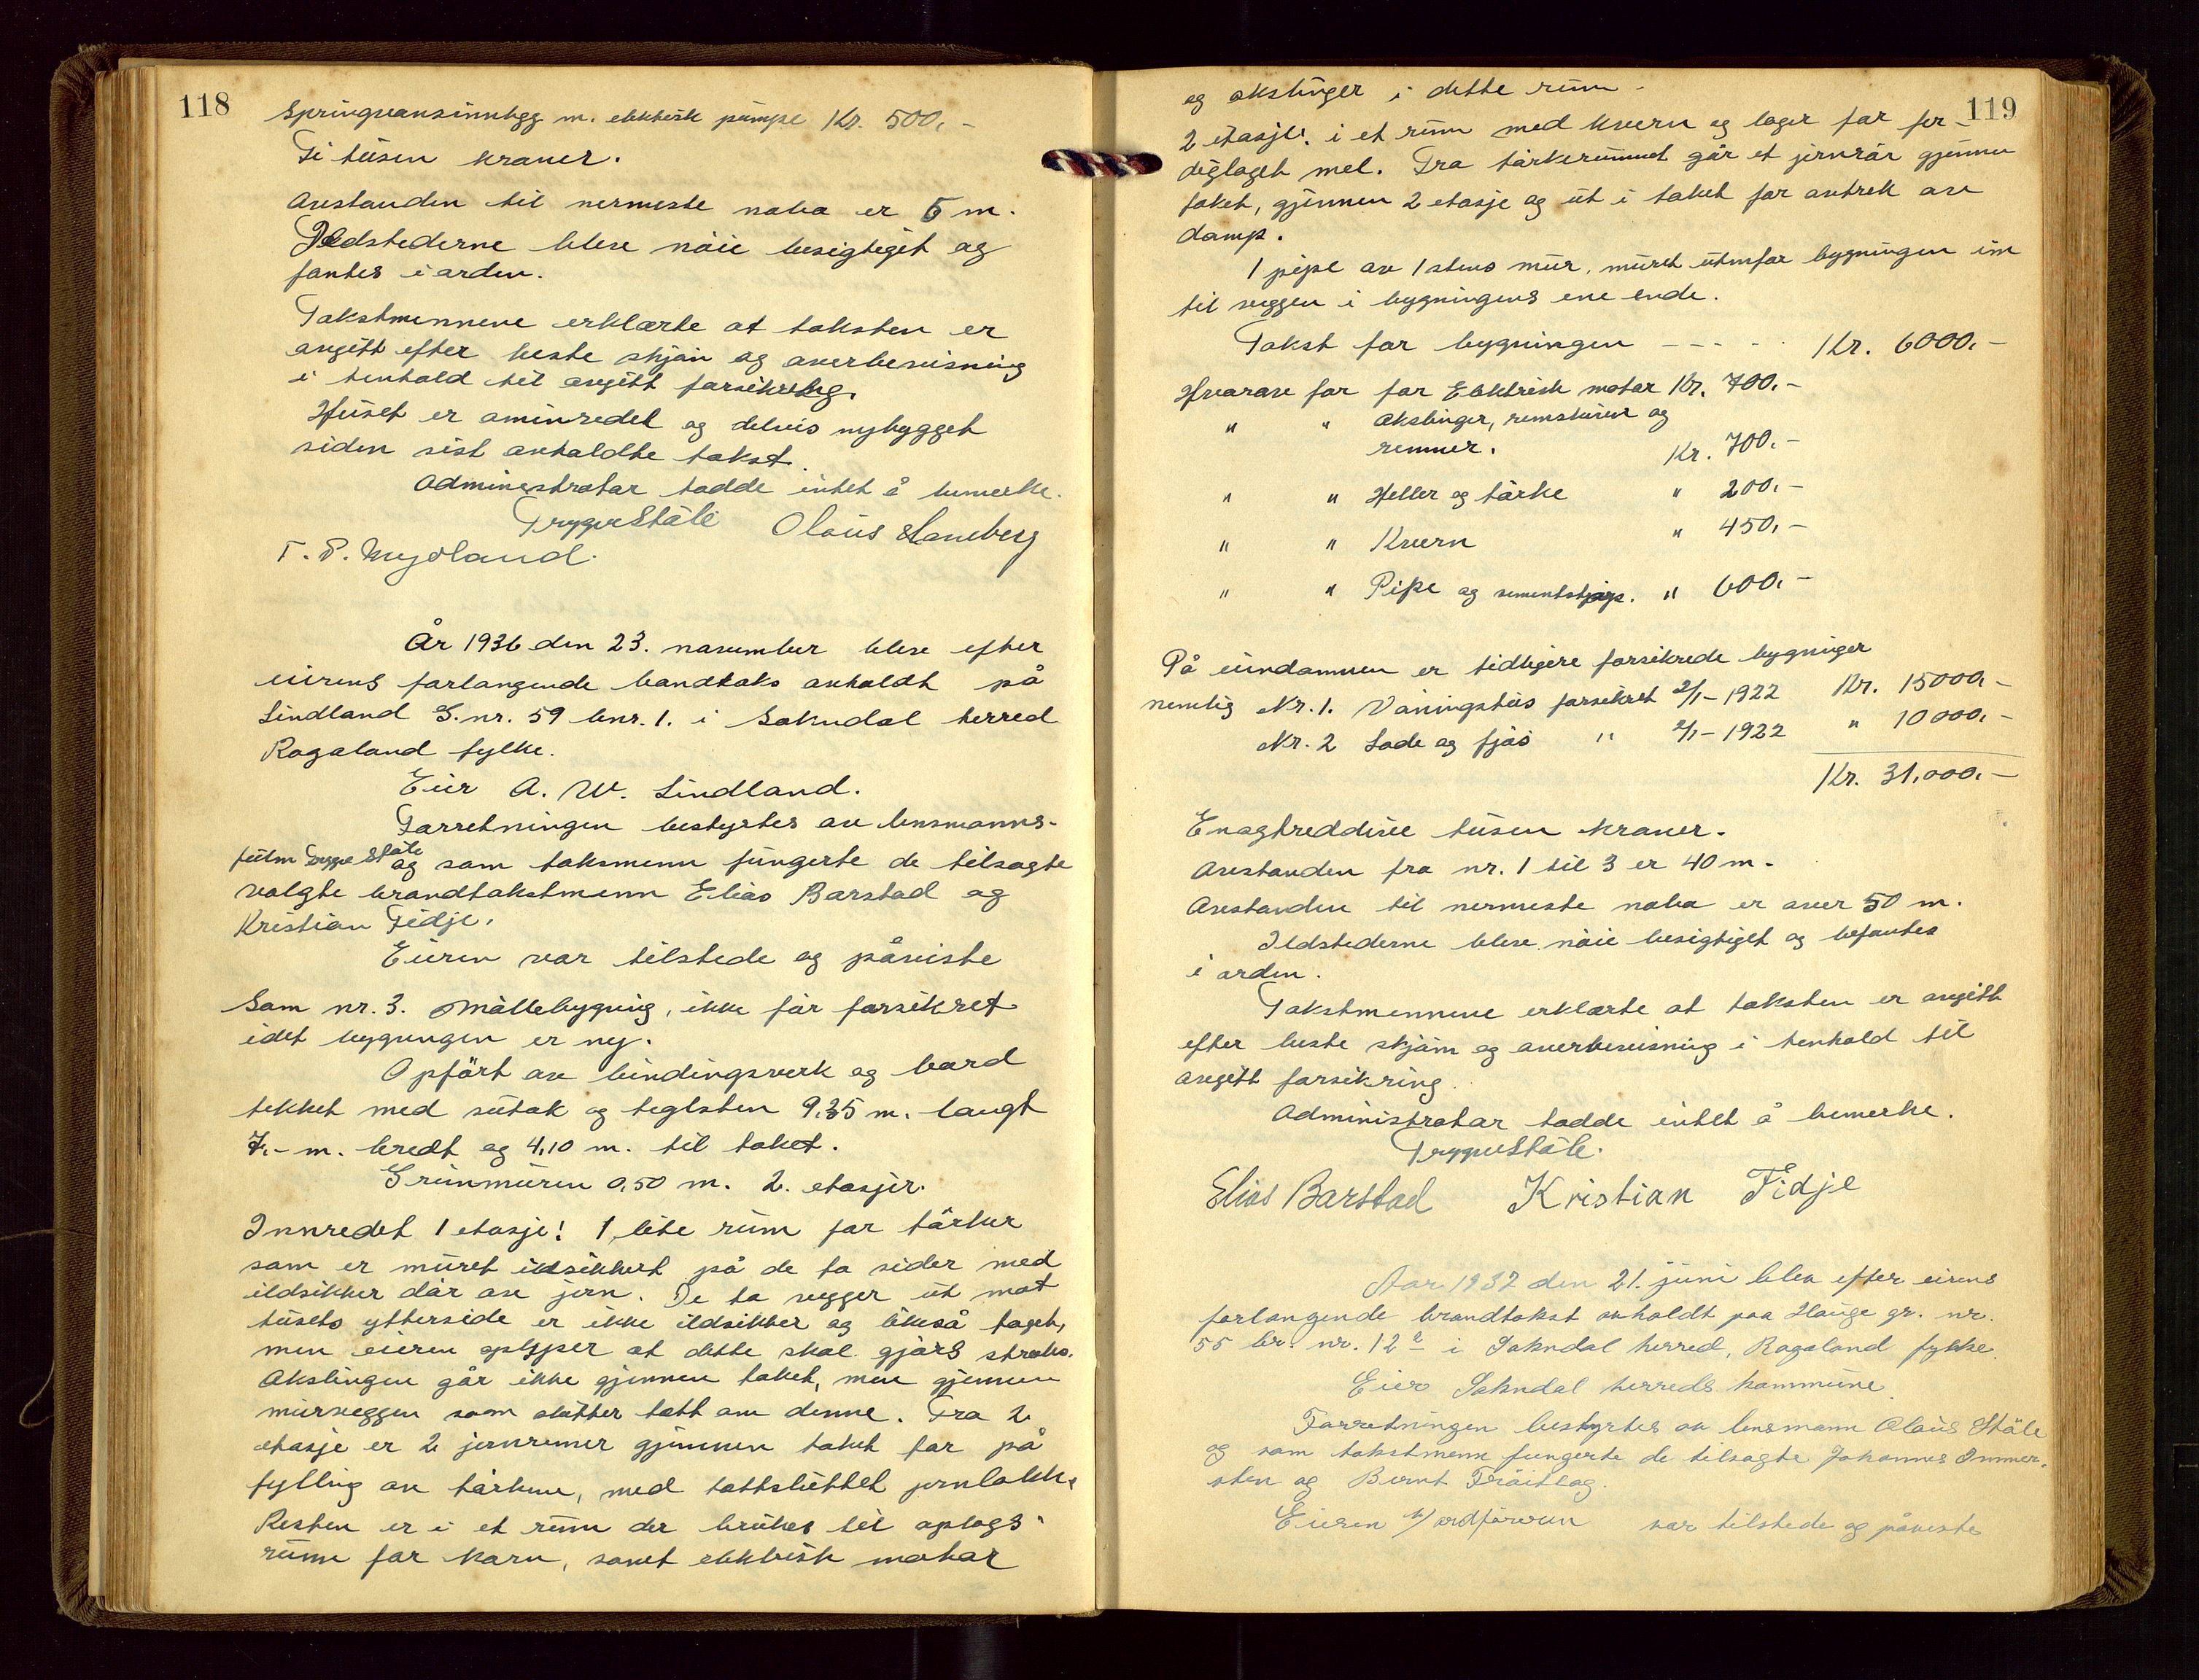 118
Springvansinnlegg m. elektrisk pumpe Kr. 500,-
Ti tusen kroner.
Avstanden til nermeste nabo er 6 m.
Ildstederne blev nöie besigtiget og
fantes i orden.
Takstmennene erklærte at taksten er
avgitt efter beste skjön og overbevisning
i henhold til avgitt forsikring.
Huset er ominredet og delvis nybygget
siden sist avholdte takst.
Administrator hadde intet å bemerke.
Trygve Ståle Olaus Haneberg
T. P. Mydland.
År 1936 den 23. november blev efter
eierens forlangende brandtakst avholdt på
Lindland G.nr. 59 bnr. 1. i Sokndal herred
Rogaland fylke.
Eier A. W. Lindland.
Forretningen bestyrtes av lensmanns-
fullm Trygve Ståle og som taksmenn fungerte de tilsagte
valgte brandtakstmenn Elias Barstad og
Kristian Fidje.
Eieren var tilstede og påviste
Som nr. 3. Möllebygning, ikke för forsikret
idet bygningen er ny.
Opfört av bindingsverk og bord
tekket med sutak og teglsten 9,35 m. langt
7,- m. bredt og 4,10 m. til taket.
Grunmuren 0,50 m. 2. etasjer.
Innredet 1 etasje: 1 lite rum for törker
som er muret ildsikkert på de to sider med
ildsikker dör av jern. De to vegger ut mot
husets ytterside er ikke ildsikker og likeså taget,
men eieren oplyser at dette skal gjörs straks.
Akslingen går ikke gjennem taket, men gjennem
murveggen som slutter tett om denne. Fra 2
etasje er 2 jernrenner gjennem taket for på
fylling av törkene, med tettsluttet jernlokk.
Resten er i et rum der brukes til oplags-
rum for korn, samt elektrisk motor
119
og akslinger i dette rum.
2 etasje: i et rum med kvern og lager for fer-
diglaget mel. Fra törkerummet går et jernrör gjennem
taket, gjennem 2 etasje og ut i taket for avtrek av
damp.
1 pipe av 1 stens mur, muret utenfor bygningen inn
til veggen i bygningens ene ende.
Takst for bygningen - - - - - Kr. 6000,-
Hvorav for for Elektrisk motor Kr. 700,-
" " Akslinger, remskiver og
remmer. Kr. 700,-
" " Heller og törke " 200,-
" " Kvern " 450,-
" " Pipe og sementstöp. " 600,-
På eiendommen er tidligere forsikrede bygninger
nemlig Nr. 1. Våningshus forsikret 2/1-1922 Kr. 15000,-
Nr. 2 Lade og fjös " 2/1-1922 " 10000,-
Kr. 31,000,-
Enogtreddive tusen kroner.
Avstanden fra nr. 1 til 3 er 40 m.
Avstanden til nermeste nabo er over 50 m.
Ildstederne blev nöie besigtiget og befantes
i orden.
Takstmennene erklærte at taksten er avgitt
efter beste skjön og overbevisning i henhold til
avgitt forsikring.
Administrator hadde intet å bemerke.
Trygve Ståle.
Elias Barstad Kristian Fidje
Aar 1937 den 21. juni blev efter eirens
forlangende brandtakst avholdt paa Hauge gr. nr.
55 br. nr. 12 i Sokndal herred, Rogaland fylke.
Eier Sokndal herreds kommune.
Forretningen bestyrtes av lensmann Olaus Ståle
og som takstmenn fungerte de tilsagte Johannes Immer-
sten og Bernt Fröitlog.
Eieren v/ ordföreren var tilstede og påviste